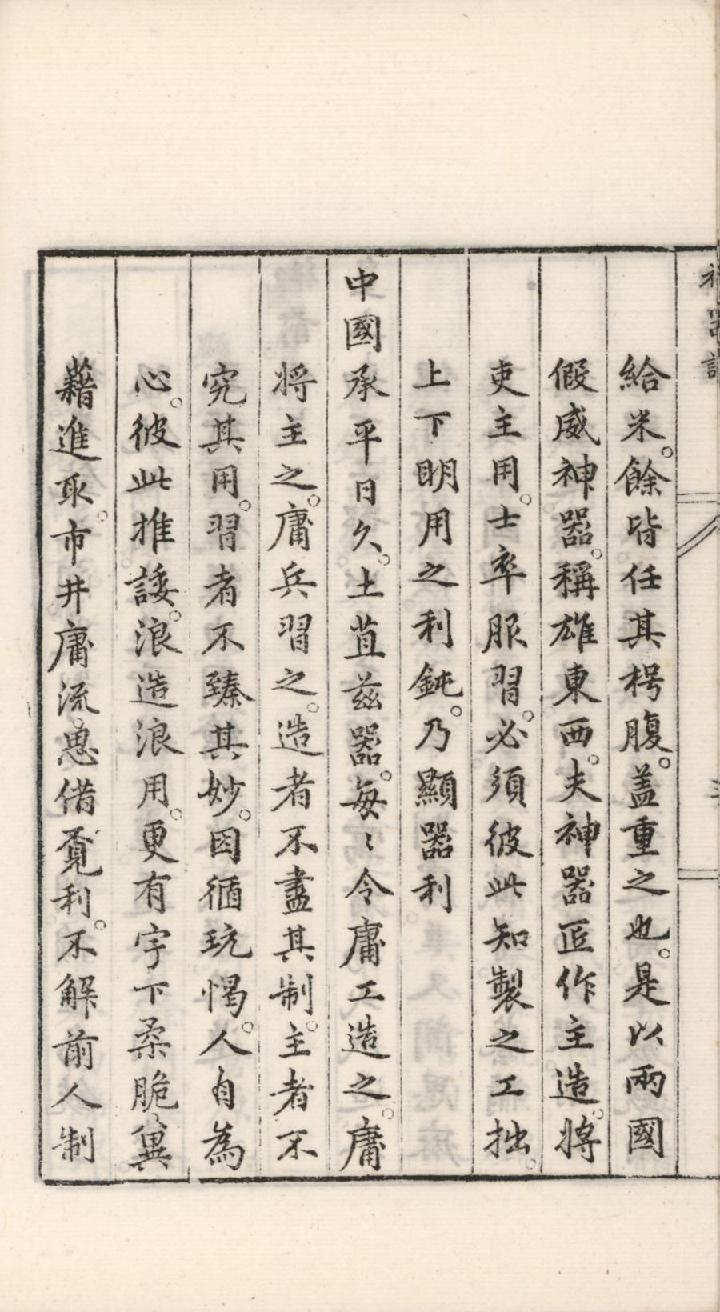 神器譜
給米。餘皆任其枵腹。盖重之也。是以兩國
假威神器。稱雄東西。夫神器匠作主造。將
吏主用。士卒服習。必須彼此知製之工拙。
上下明用之利鈍。乃顯器利
中國承平日久。土苴茲器。每〻令庸工造之。庸
將主之。庸兵習之。造者不盡其制。主者不
究其用。習者不臻其妙。因循玩愒。人自為
心。彼此推諉。浪造浪用。更有宇下柔脆兾
藉進取。市井庸流。思借覔利。不解前人制